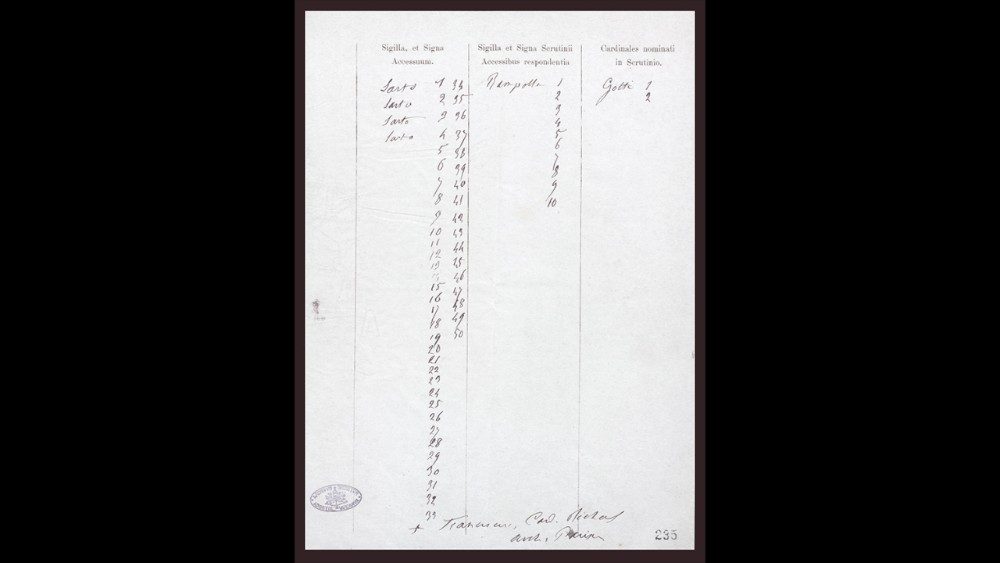 Sigilla, et Signa
Accessuum.
Sarto 1 34
Sarto 2 35
Sarto 3 36
Sarto 4 37
5 38
6 39
7 40
8 41
9 42
10 43
11 44
12 45
13 46
47
15 48
16 49
17 50
18
19
20
21
22
23
24
25
26
27
28
29
30
31
32
33
Sigilla et Signa Scrutinii
Accessibus respondentia
Rampolla 1
2
3
4
5
6
7
8
9
10
Cardinales nominati
in Scrutinio.
Gotti 1
2
+ Franciscus, Card. Richard
arch.
235